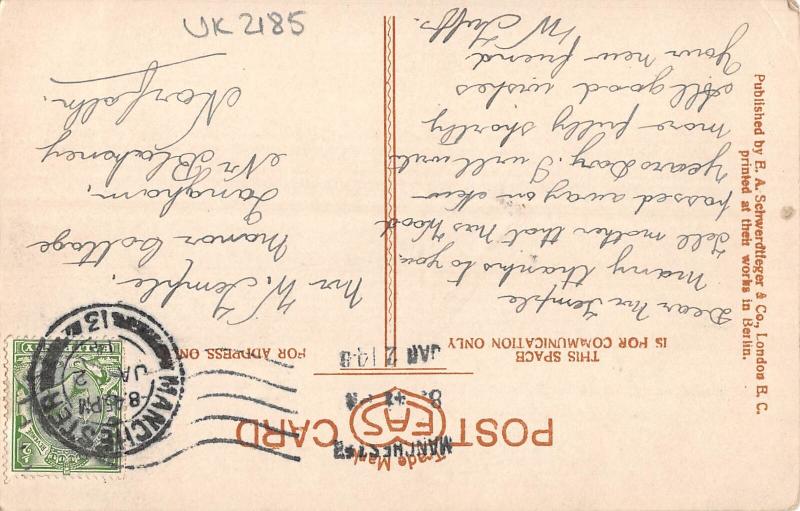 UK 2185
POST CARD
EAS
Trade Mark
THIS SPACE
IS FOR COMMUNICATION ONLY
FOR ADDRESS ON
MANCHESTER
8.45 PM
JAN 2 14
MANCHESTER
8.45 PM
JA 2
13
Dear Mr Temple
Many thanks to you.
Tell mother that Mrs Wood
passed away on New
Years Day. I will write
more fully shortly
All good wishes
Your new friend
W
Mr W. Temple.
Manor Cottage
Langham.
Nr Blakeney
Norfolk.
Published by E. A. Schwerdtfeger & Co., London E. C.
printed at their works in Berlin.